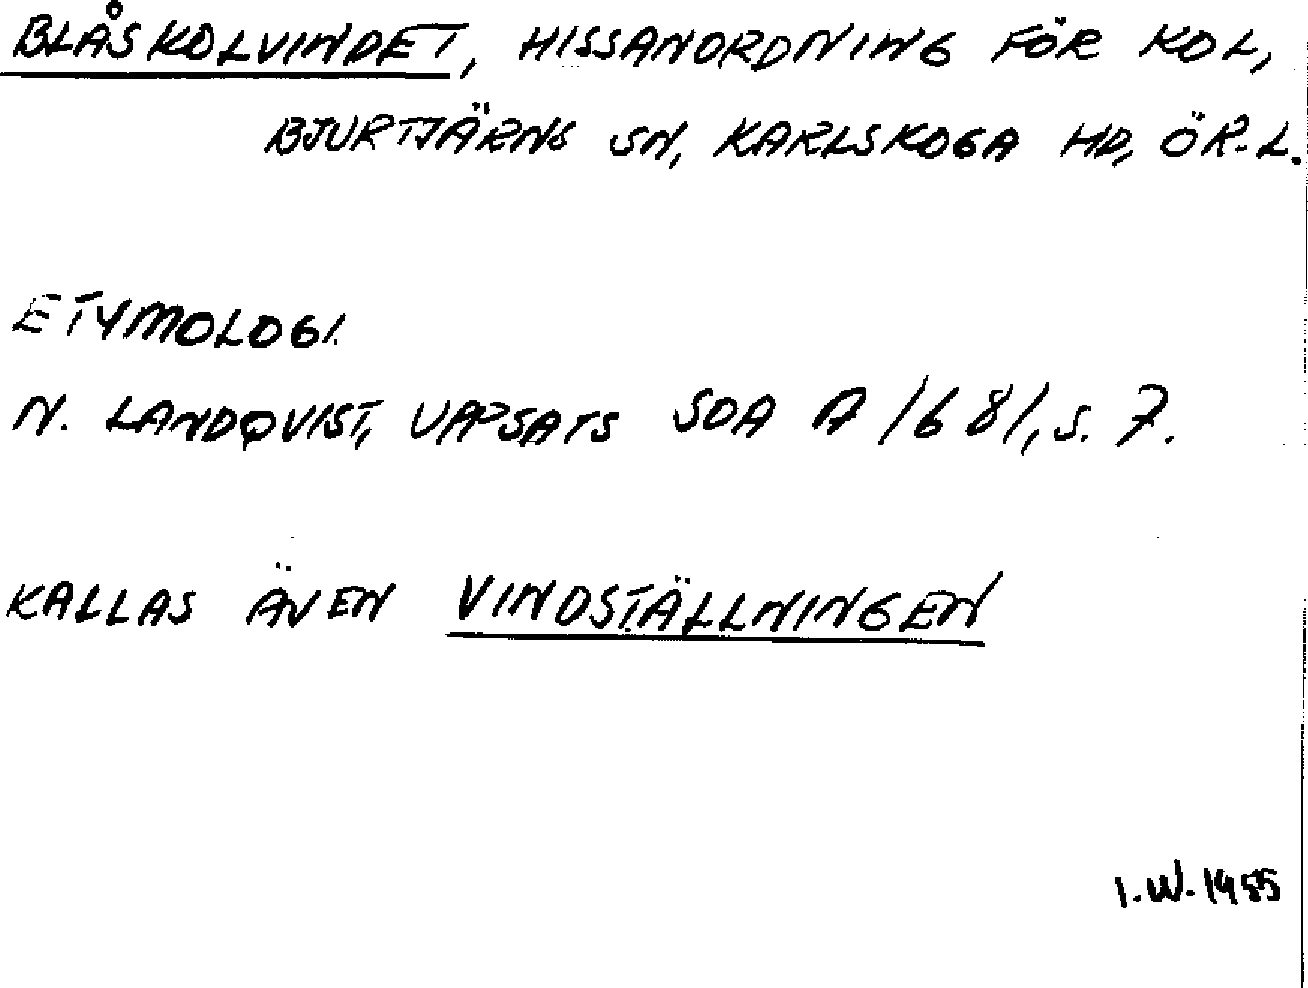 BLÅSKOLVINDET, HISSANORDNING FÖR KOL,
BJURTJÄRNS SN, KARLSKOGA HD, ÖR-L.
ETYMOLOGI.
N. LANDQVIST, UPPSATS SOA A 1681, S. 7.
KALLAS ÄVEN VINDSTÄLLNINGEN
I.W. 1985